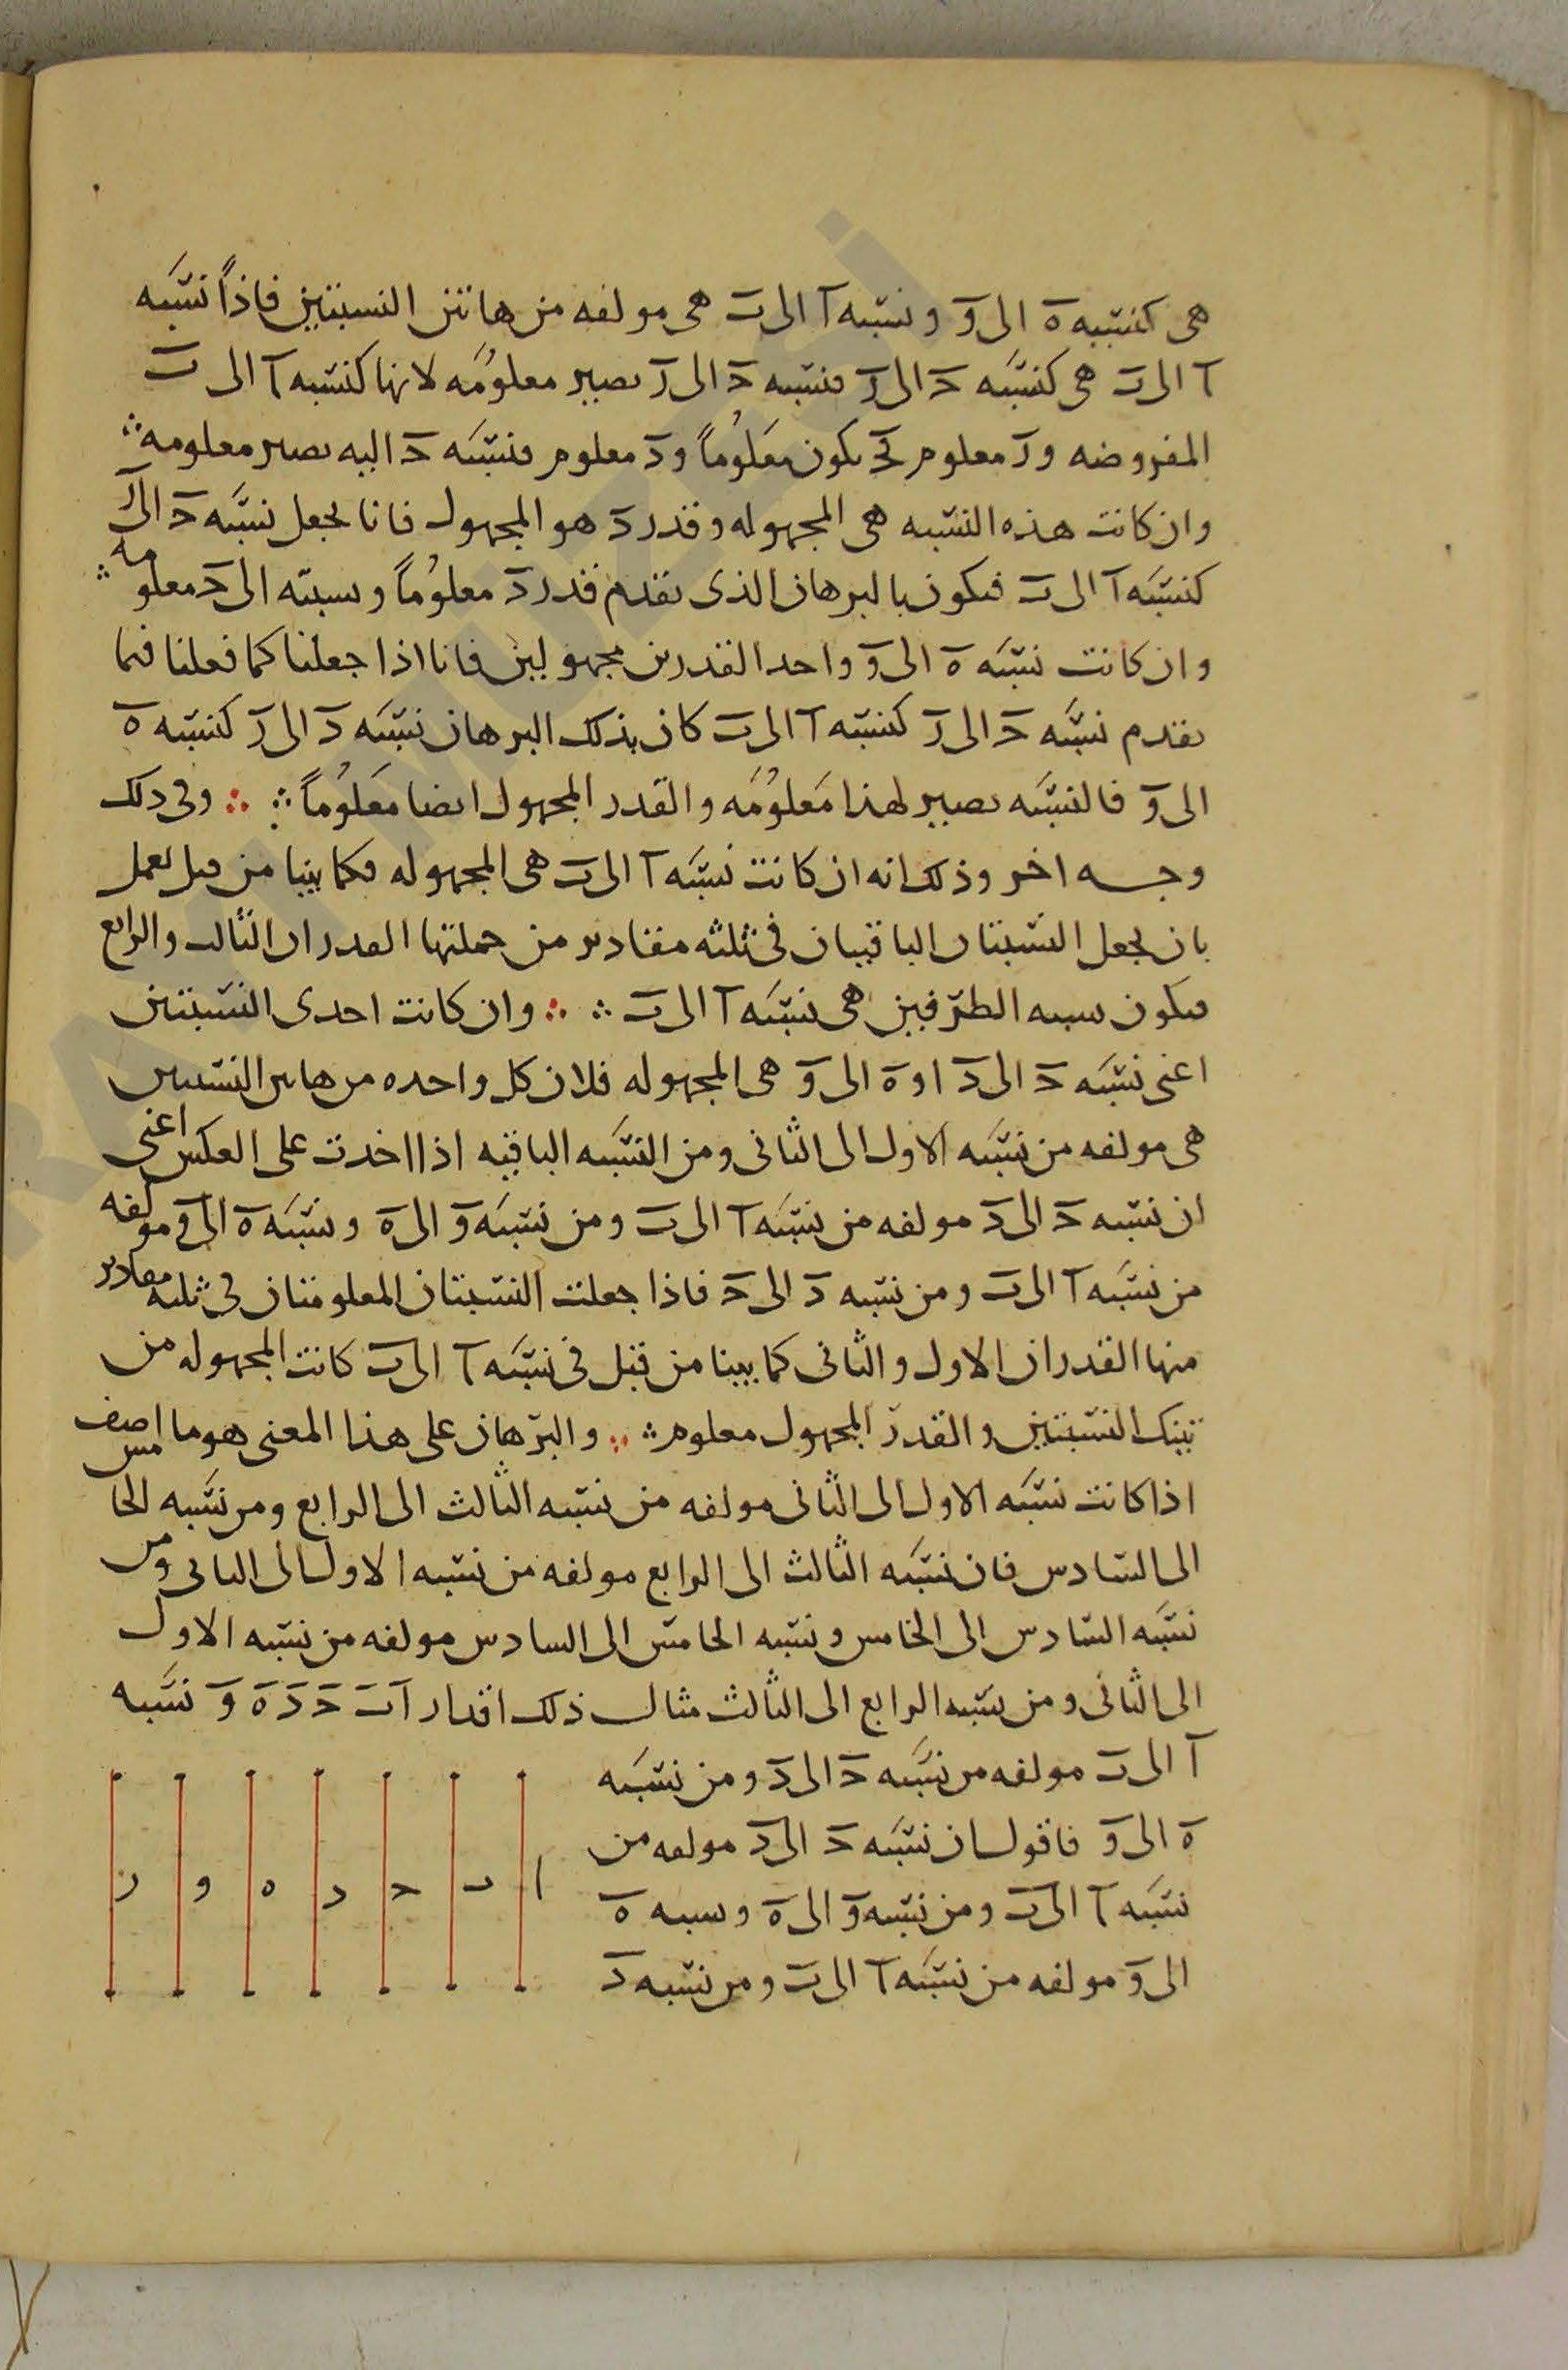 هى كنسبه ه الى و ونسبه ا الى ب هى مولفه من هاتين النسبتين فاذاً نسبه
ا الى ب هى كنسبه ح الى ر فنسبه ح الى ر تصير معلومه لانها كنسبه ا الى ب
المفروضه ود معلوم فح يكون معلوماً ود معلوم فنسبه ح اليه تصير معلومه
وان كانت هذه النسبه هى المجهوله وقدر د هو المجهول فانا نجعل نسبه ح الى ر
كنسبه ا الى ب فيكون بالبرهان الذى تقدم قدر د معلوماً ونسبته الى ح معلومه
وان كانت نسبه ه الى و واحد القدرين مجهولين فانا اذا جعلنا كما فعلنا فيما
تقدم نسبه ح الى ر كنسبه ا الى ب كان بذلك البرهان نسبه د الى ر كنسبه ه
الى و فالنسبه تصير لهذا معلومه والقدر المجهول ايضا معلوماً وفى ذلك
وجه اخر وذلك انه ان كانت نسبه ا الى ب هى المجهوله فكما بينا من قبل نعمل
بان نجعل النسبتان الباقيتان فى ثلثه مقادير من جملتها القدران الثالث والرابع
فيكون نسبه الطرفين هى نسبه ا الى ب وان كانت احدى النسبتين
اعنى نسبه ح الى د او ه الى و هى المجهوله فلان كل واحده من هاتين النسبتين
هى مولفه من نسبه الاول الى الثانى ومن النسبه الباقيه اذا اخذت على العكس اعنى
ان نسبه ح الى د مولفه من نسبه ا الى ب ومن نسبه و الى ه ونسبه ه الى و مولفه
من نسبه ا الى ب ومن نسبه د الى ح فاذا جعلت النسبتان المعلومتان فى ثلثه مقادير
منها القدران الاول والثانى كما بينا من قبل فى نسبه ا الى ب كانت المجهوله من
تينك النسبتين والقدر المجهول معلوم والبرهان على هذا المعنى هو ما اصف
اذا كانت نسبه الاول الى الثانى مولفه من نسبه الثالث الى الرابع ومن نسبه الخامس
الى السادس فان نسبه الثالث الى الرابع مولفه من نسبه الاول الى الثانى ومن
نسبه السادس الى الخامس ونسبه الخامس الى السادس مولفه من نسبه الاول
الى الثانى ومن نسبه الرابع الى الثالث مثال ذلك اقدار ا ب ح د ه و نسبه
ا الى ب مولفه من نسبه ح الى د ومن نسبه
ه الى و فاقول ان نسبه ح الى د مولفه من
نسبه ا الى ب ومن نسبه و الى ه ونسبه ه
الى و مولفه من نسبه ا الى ب ومن نسبه د
ا ب ح د ه و ر